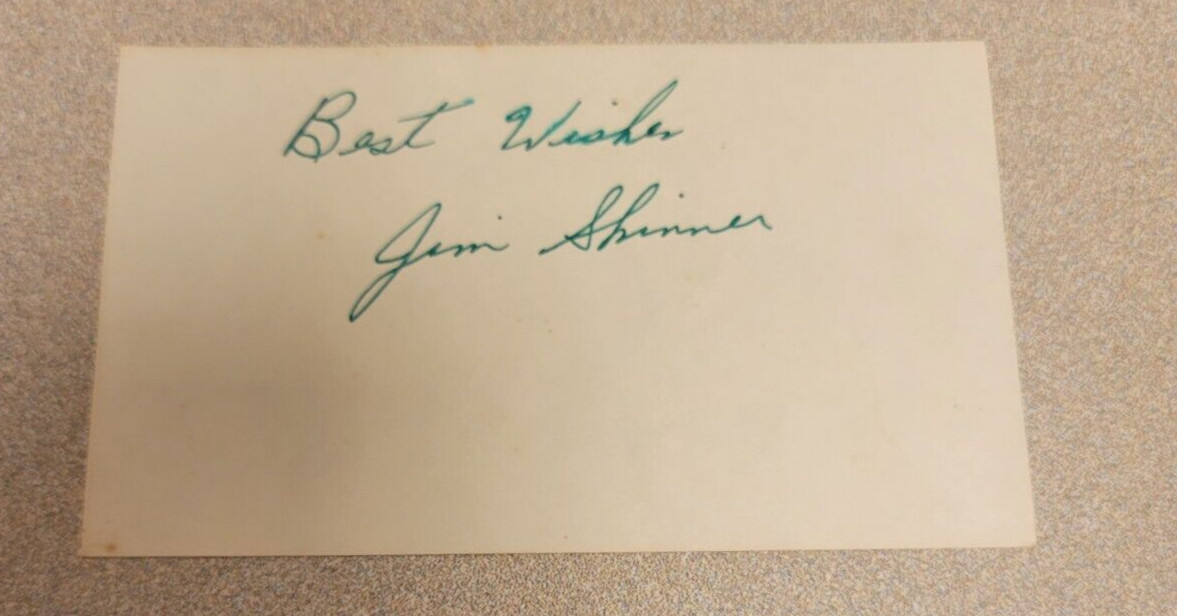 Best Wishes
Jim Skinner